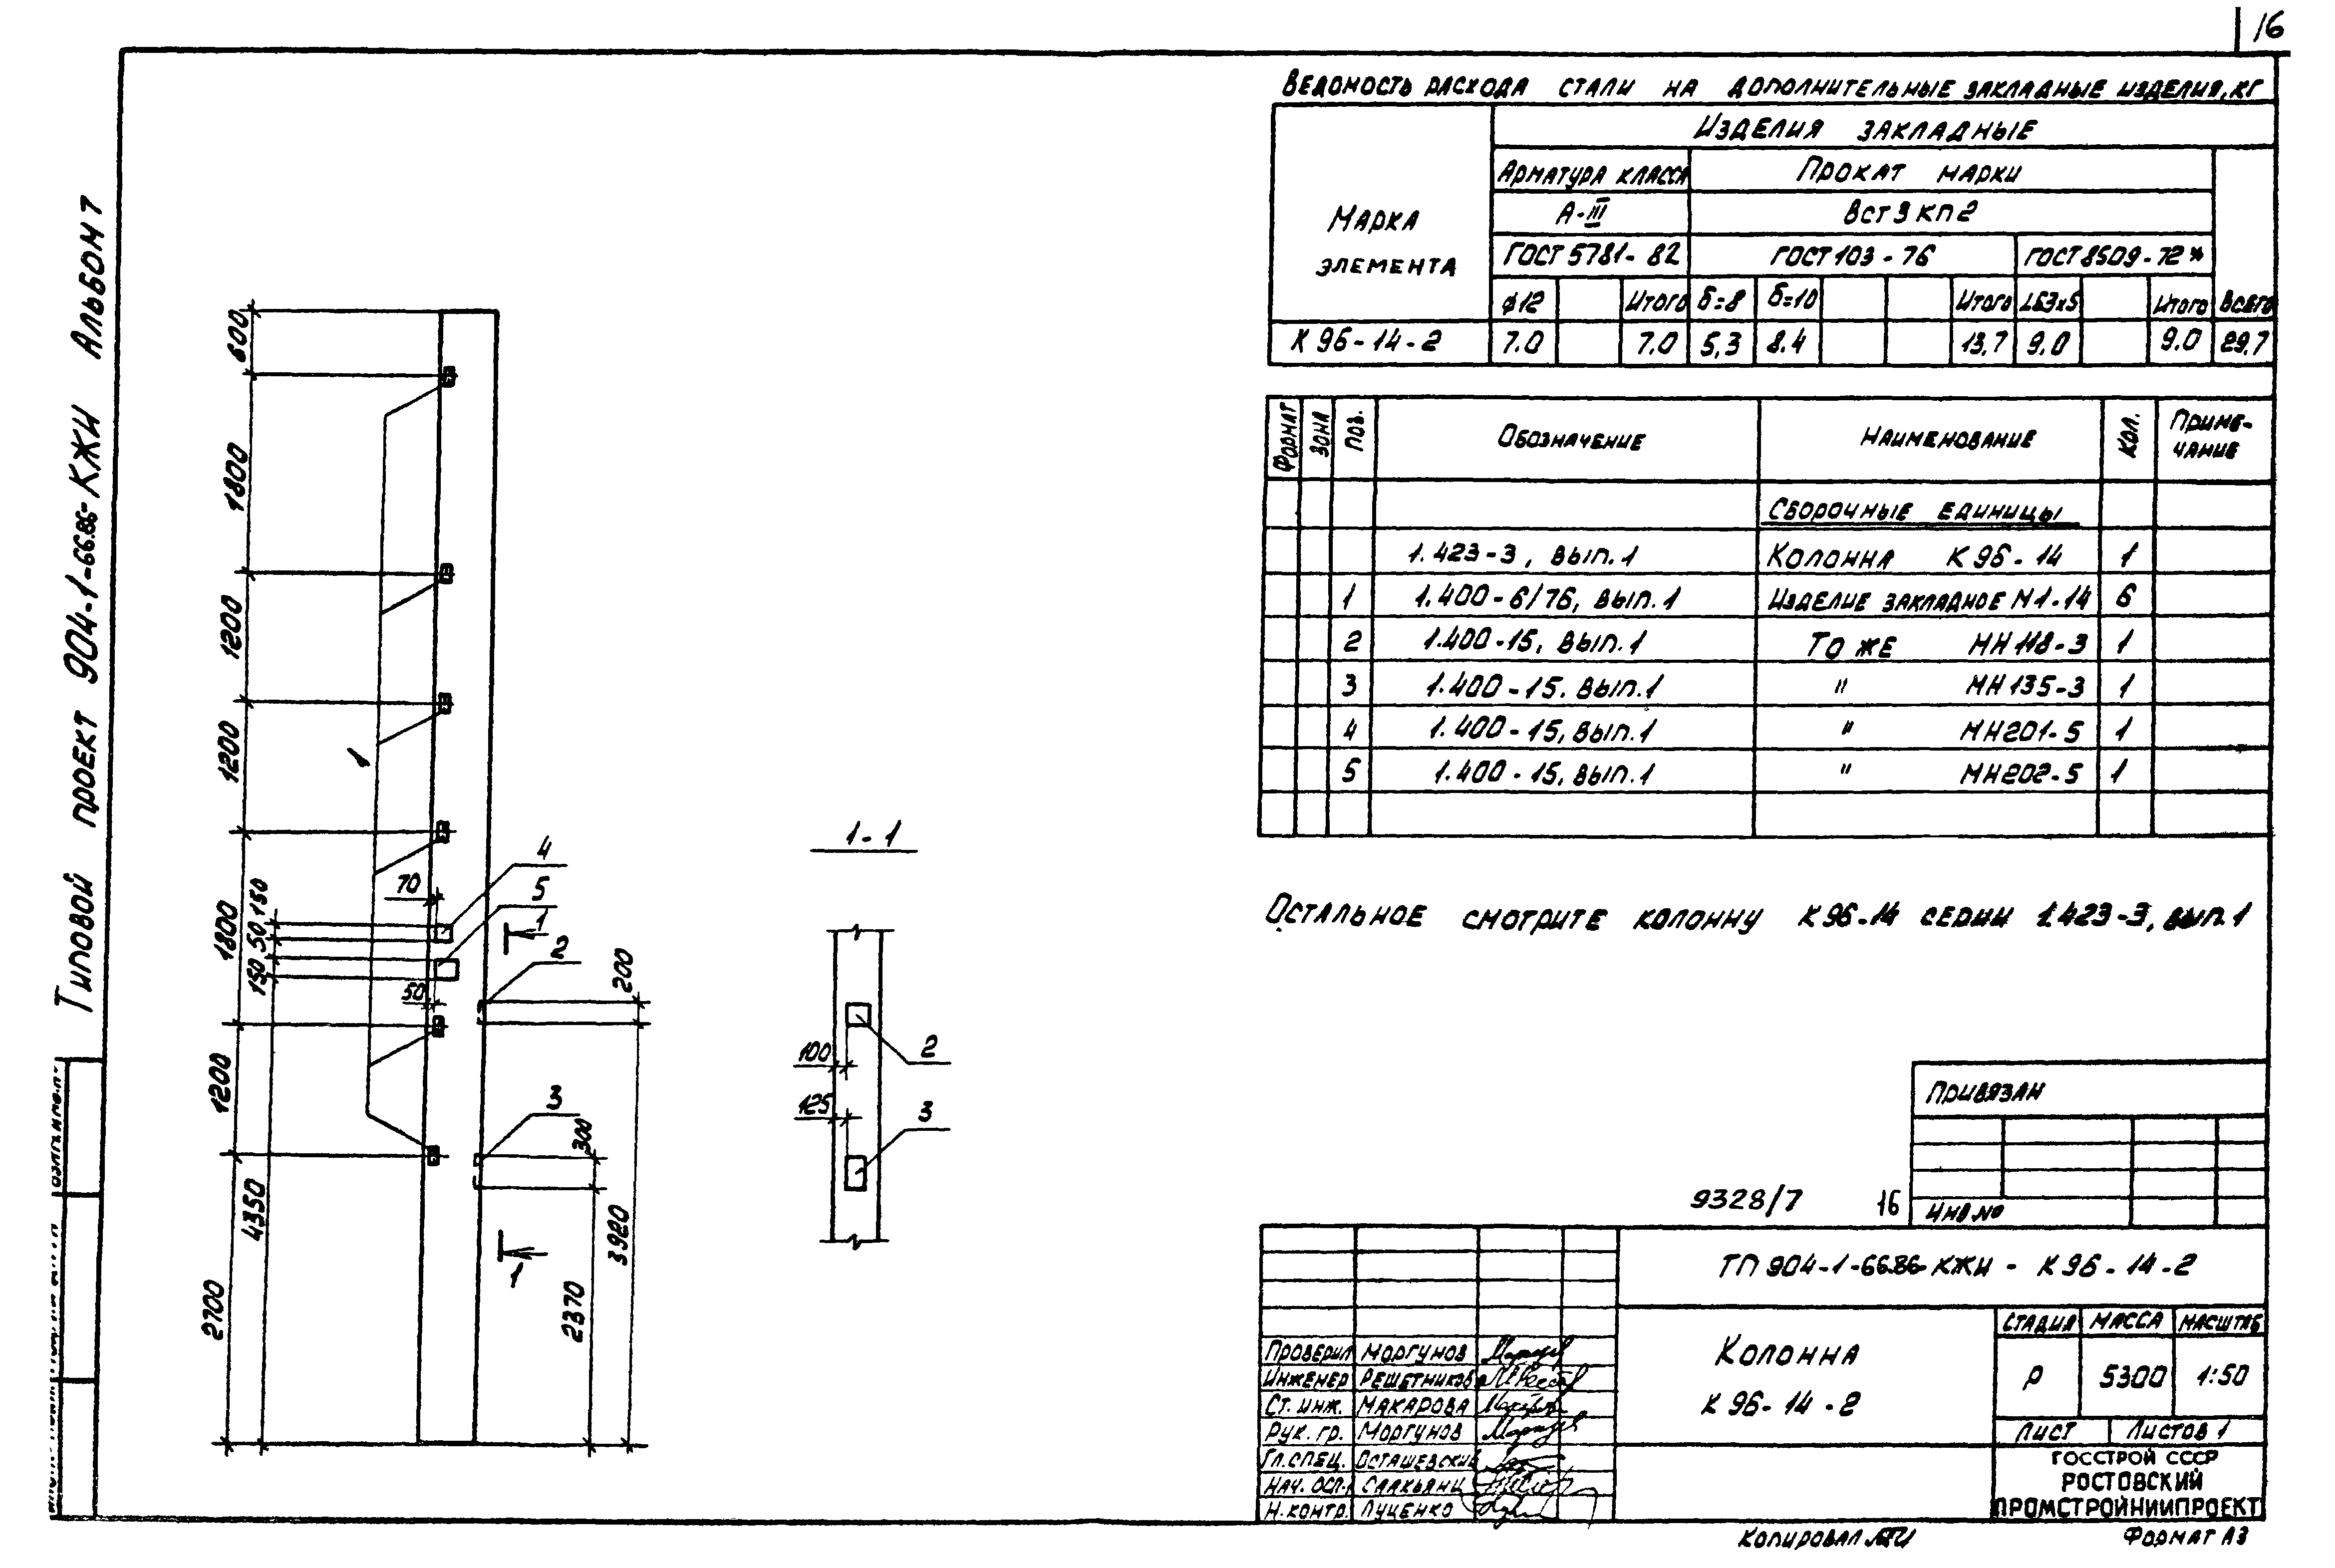 16
Типовой проект 904-1-66.86-КЖИ Альбом 7
Ведомость расхода стали на дополнительные закладные изделия, кг
Марка элемента
Изделия закладные
Арматура класса
Прокат марки
А-III
Вст3кп2
ГОСТ 5781-82
ГОСТ 103-76
ГОСТ 8509-72*
ф12 Итого δ=8 δ=10 Итого ∟63х5 Итого Всего
К 96-14-2 7.0 7.0 5,3 8.4 13,7 9,0 9.0 29,7
Формат Зона Поз. Обозначение Наименование Кол. Приме-
чание
Сборочные единицы
1.423-3, вып.1 Колонна К 96-14 1
1 1.400-6/76, вып.1 Изделие закладное М1-14 6
2 1.400-15, вып.1 То же МН 118-3 1
3 1.400-15. вып.1 " МН 135-3 1
4 1.400-15, вып.1 " МН201-5 1
5 1.400-15, вып.1 " МН202-5 1
Остальное смотрите колонну К 96-14 серии 1.423-3, вып.1
600
1800
1200
1200
1800
1200
2700
150
50
150
4350
70
50
1
4
5
1
2
200
3
300
1
2370
3920
1-1
100
2
125
3
Привязан
Инв.№
9328/7 16
ТП 904-1-66.86-КЖИ - К 96-14-2
Колонна
К 96-14-2
Стадия Масса Масштаб
Р 5300 1:50
Лист Листов 1
ГОССТРОЙ СССР
РОСТОВСКИЙ
ПРОМСТРОЙНИИПРОЕКТ
Проверил Моргунов
Инженер Решетников
Ст. инж. Макарова
Рук. гр. Моргунов
Гл.спец. Осташевский
Нач. осп-1 Саакьянц
Н.контр. Луценко
Копировал
Формат А3